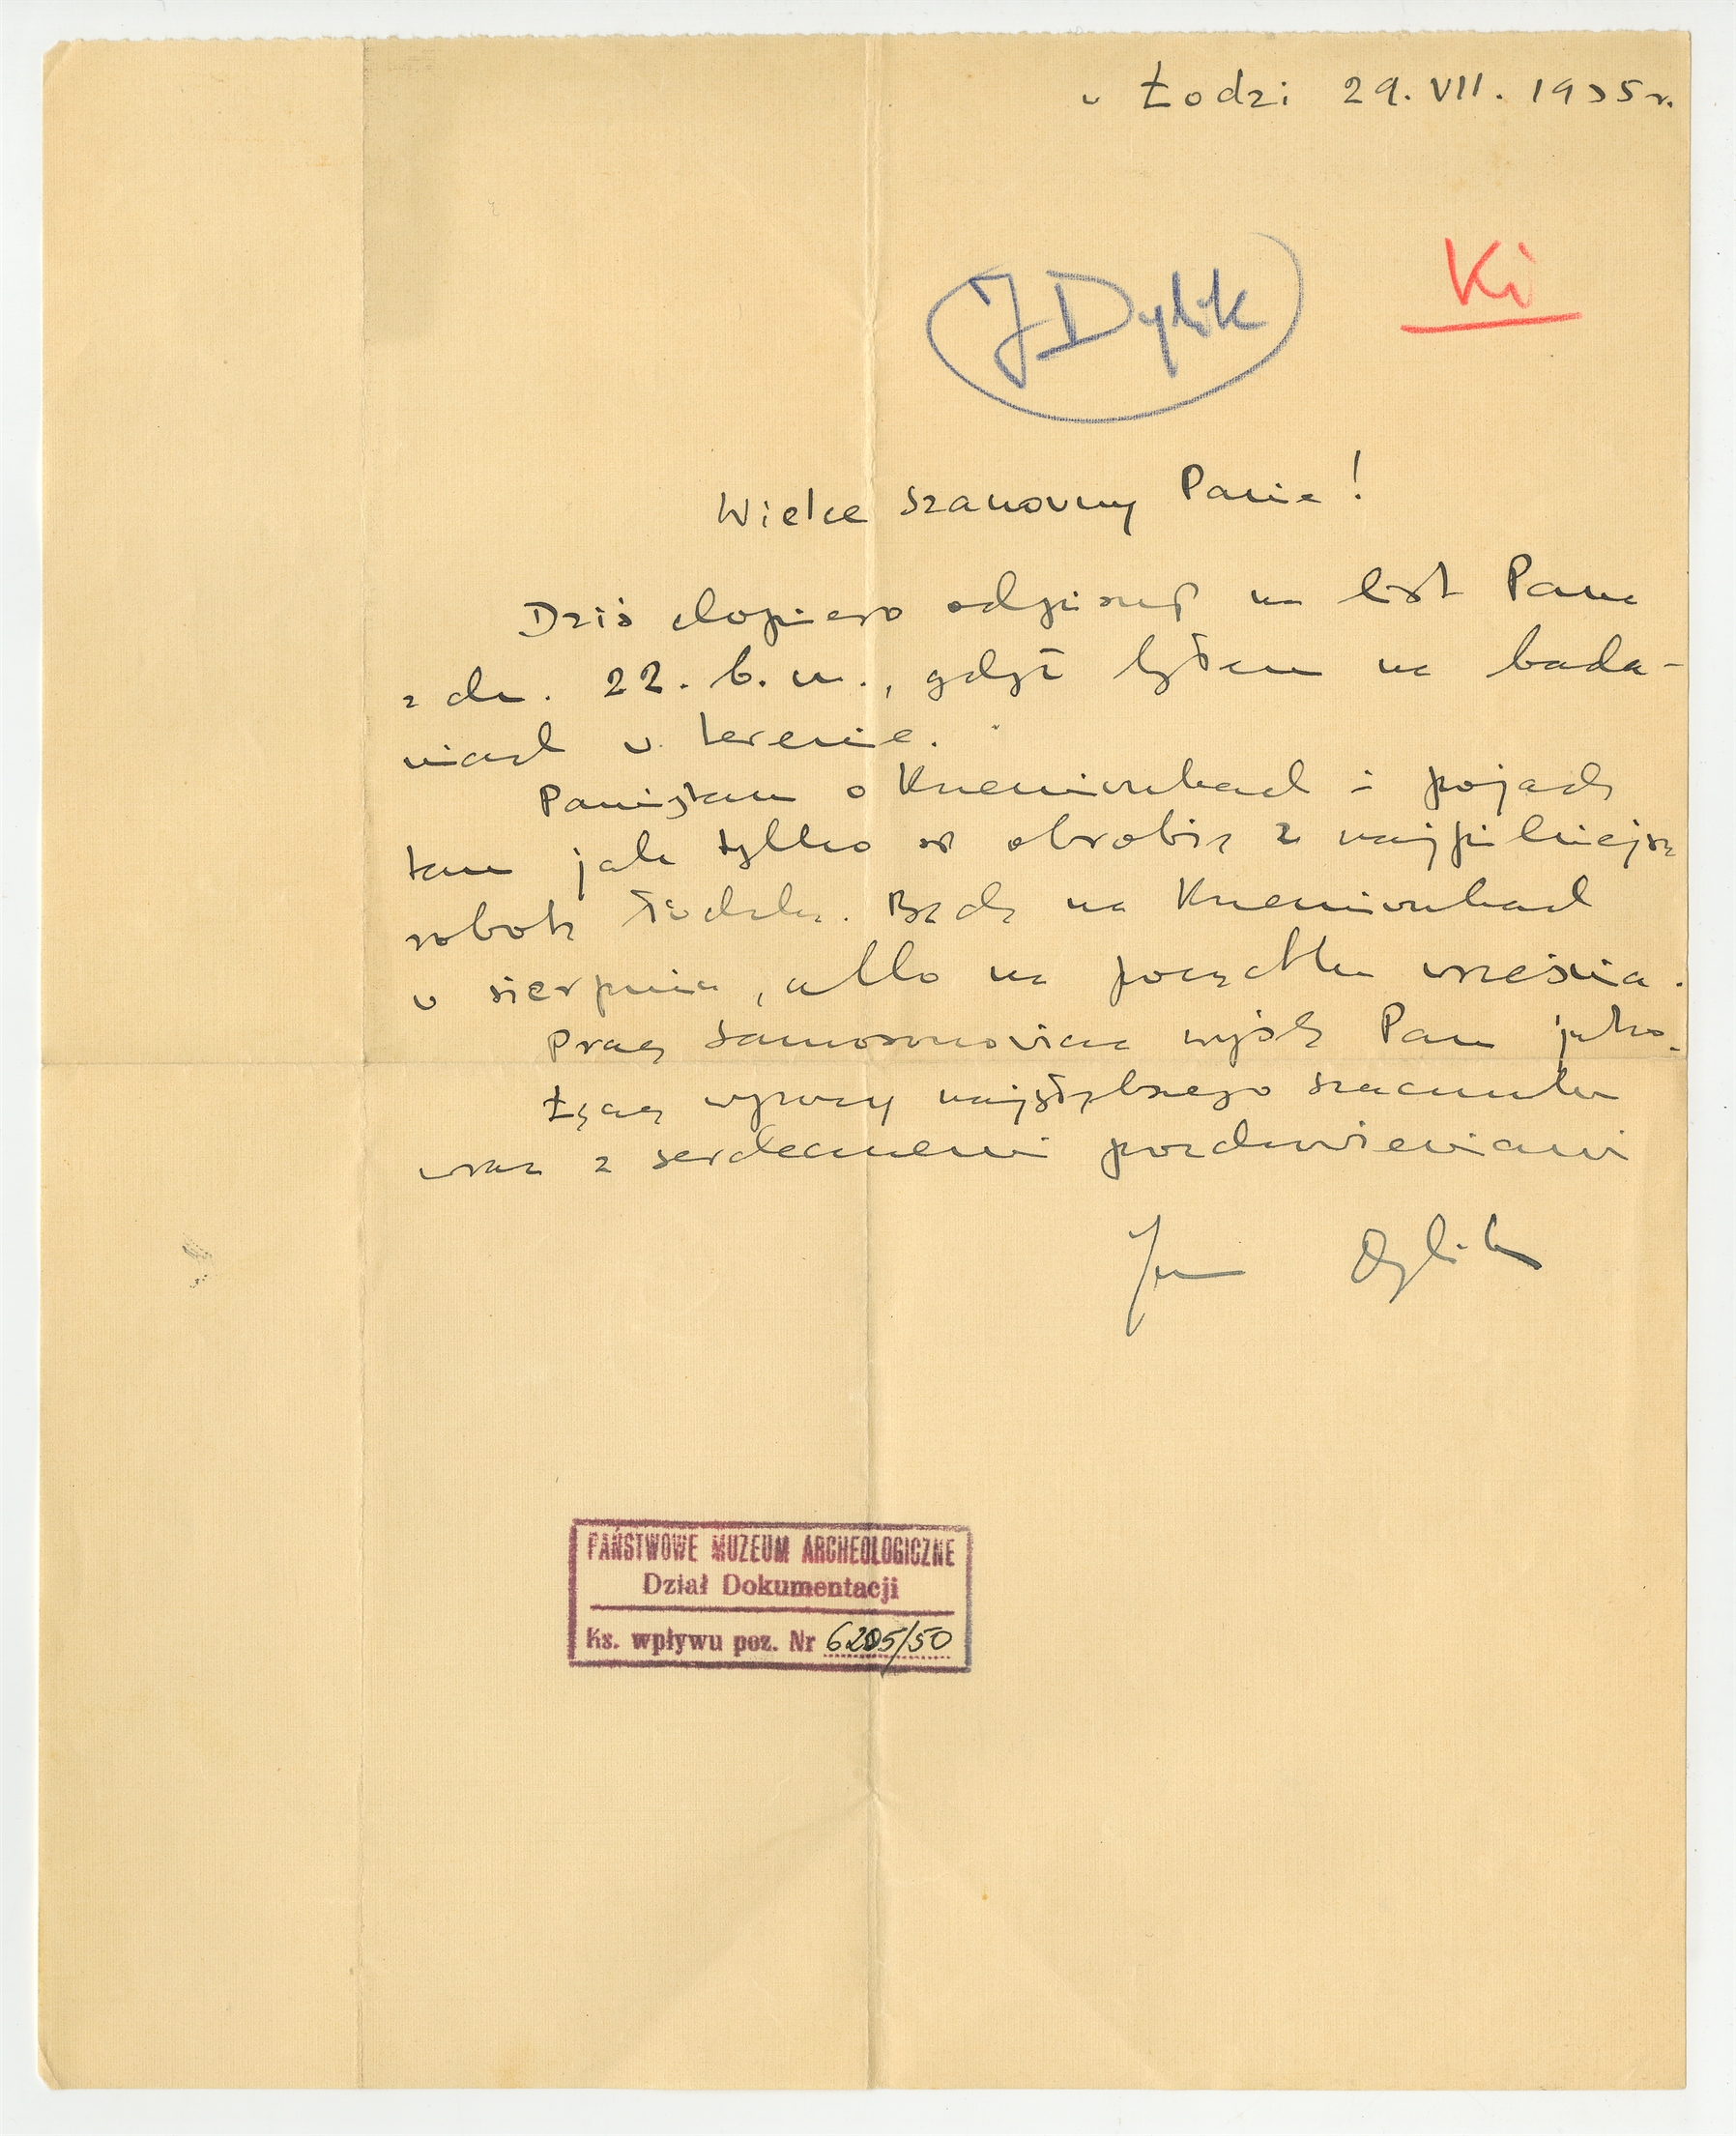 w Łodzi 29. VII. 1935 r.
J Dylik
Ki
Wielce Szanowny Panie!
Dziś dopiero odpisuję na list Pana
z dn. 22. b.m., gdyż byłem na bada-
niach w terenie.
Pamiętam o Krzemionkach i pojadę
tam jak tylko się obrobię z najpilniejszą
robotą łódzką. Będę na Krzemionkach
w sierpniu, albo na początku września.
Pracę Samsonowicza wyślę Panu jutro.
Łączę wyrazy najgłębszego szacunku
wraz z serdecznemi pozdrowieniami
Jan Dylik
PAŃSTWOWE MUZEUM ARCHEOLOGICZNE
Dział Dokumentacji
Ks. wpływu poz. Nr 6205/50